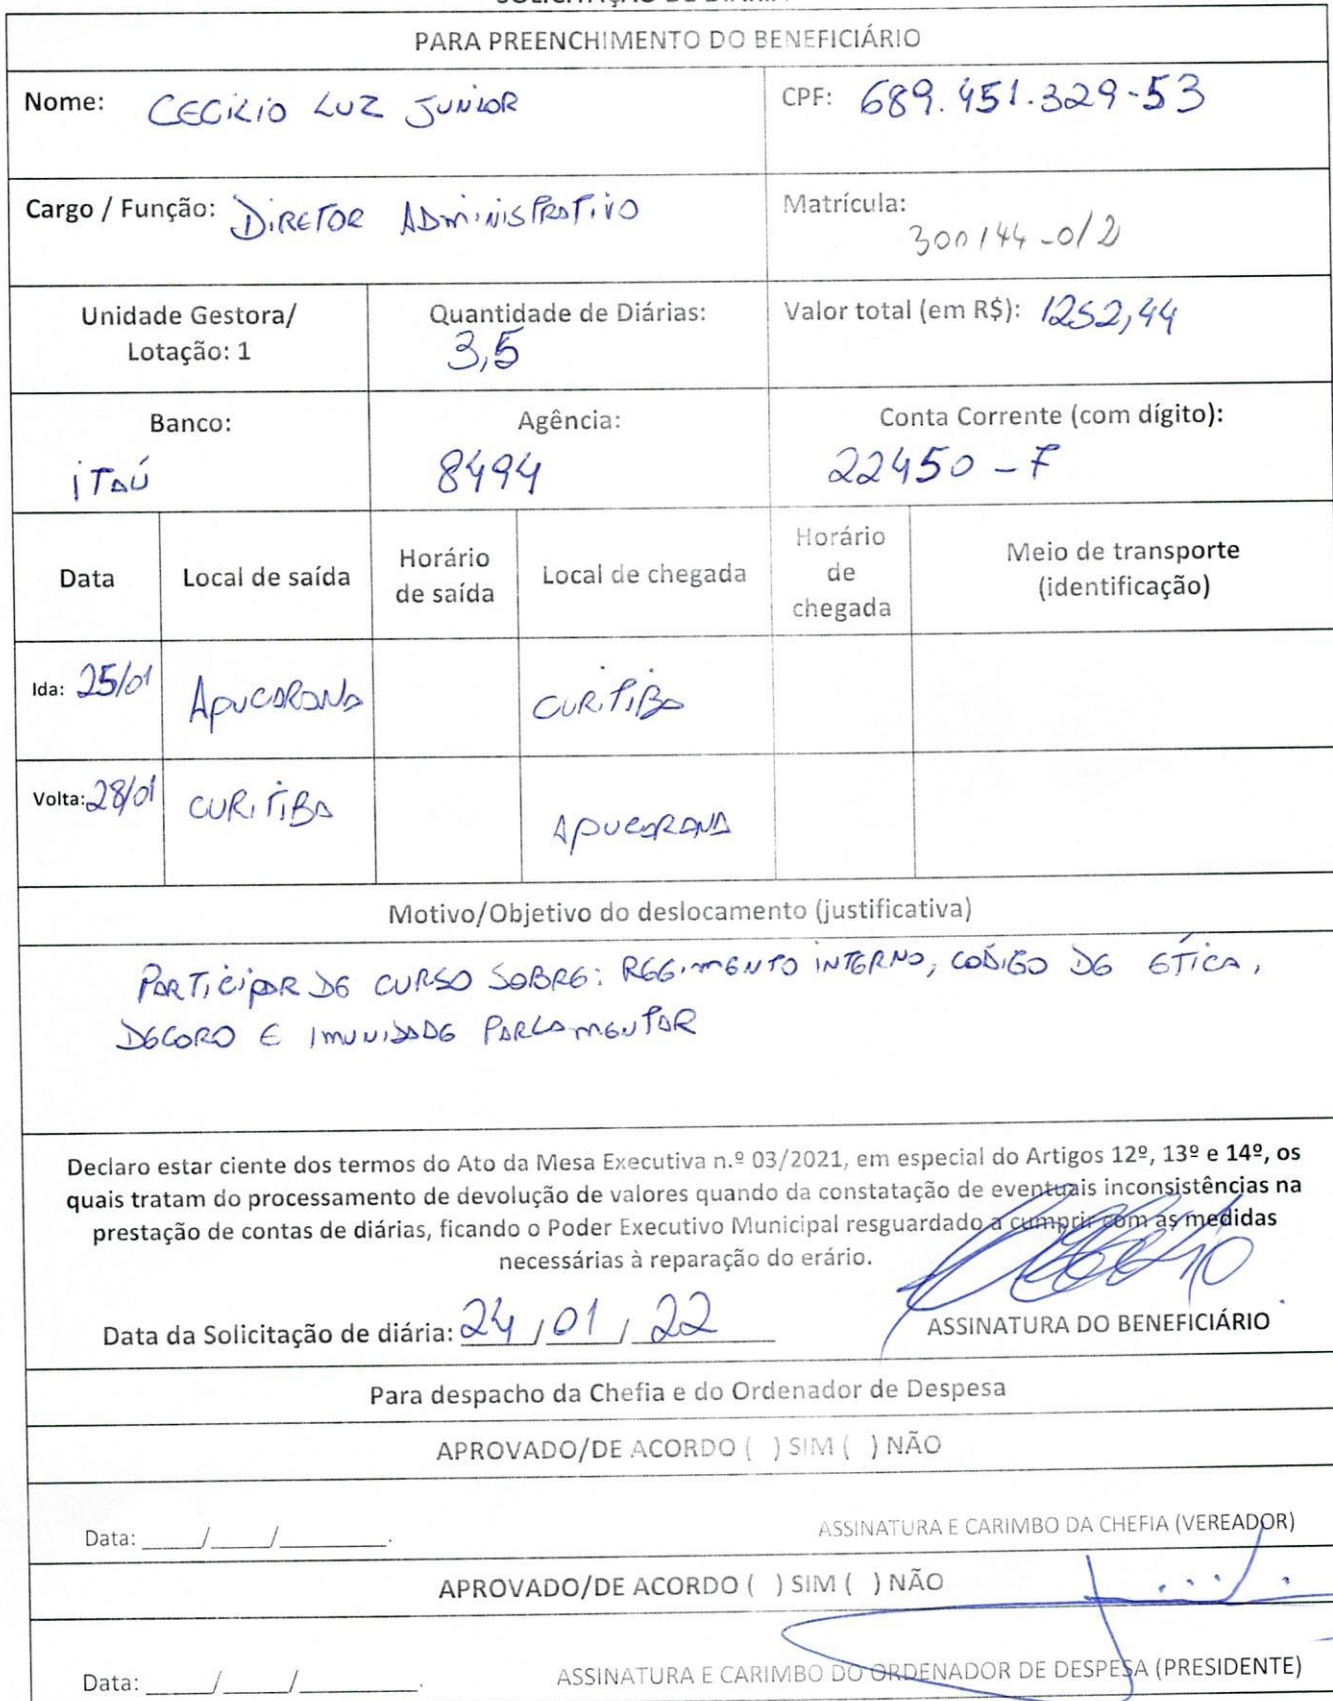 PARA PREENCHIMENTO DO BENEFICIÁRIO
Nome: CECILIO LUZ JUNIOR
CPF: 689.451.329-53
Cargo / Função: DIRETOR ADMINISTRATIVO
Matrícula:
300144-0/2
Unidade Gestora/
Lotação: 1
Quantidade de Diárias:
3,5
Valor total (em R$): 1252,44
Banco:
ITAÚ
Agência:
8494
Conta Corrente (com dígito):
22450-7
Data
Local de saída
Horário
de saída
Local de chegada
Horário
de
chegada
Meio de transporte
(identificação)
Ida: 25/01
APUCARANA
CURITIBA
Volta: 28/01
CURITIBA
APUCARANA
Motivo/Objetivo do deslocamento (justificativa)
PARTICIPAR DE CURSO SOBRE: REGIMENTO INTERNO, CODIGO DE ÉTICA,
DECORO E IMUNIDADE PARLAMENTAR
Declaro estar ciente dos termos do Ato da Mesa Executiva n.º 03/2021, em especial do Artigos 12º, 13º e 14º, os
quais tratam do processamento de devolução de valores quando da constatação de eventuais inconsistências na
prestação de contas de diárias, ficando o Poder Executivo Municipal resguardado a cumprir com as medidas
necessárias à reparação do erário.
Data da Solicitação de diária: 24/01/22
ASSINATURA DO BENEFICIÁRIO
Para despacho da Chefia e do Ordenador de Despesa
APROVADO/DE ACORDO ( ) SIM ( ) NÃO
Data: _____/_____/_________.
ASSINATURA E CARIMBO DA CHEFIA (VEREADOR)
APROVADO/DE ACORDO ( ) SIM ( ) NÃO
Data: _____/_____/_________.
ASSINATURA E CARIMBO DO ORDENADOR DE DESPESA (PRESIDENTE)